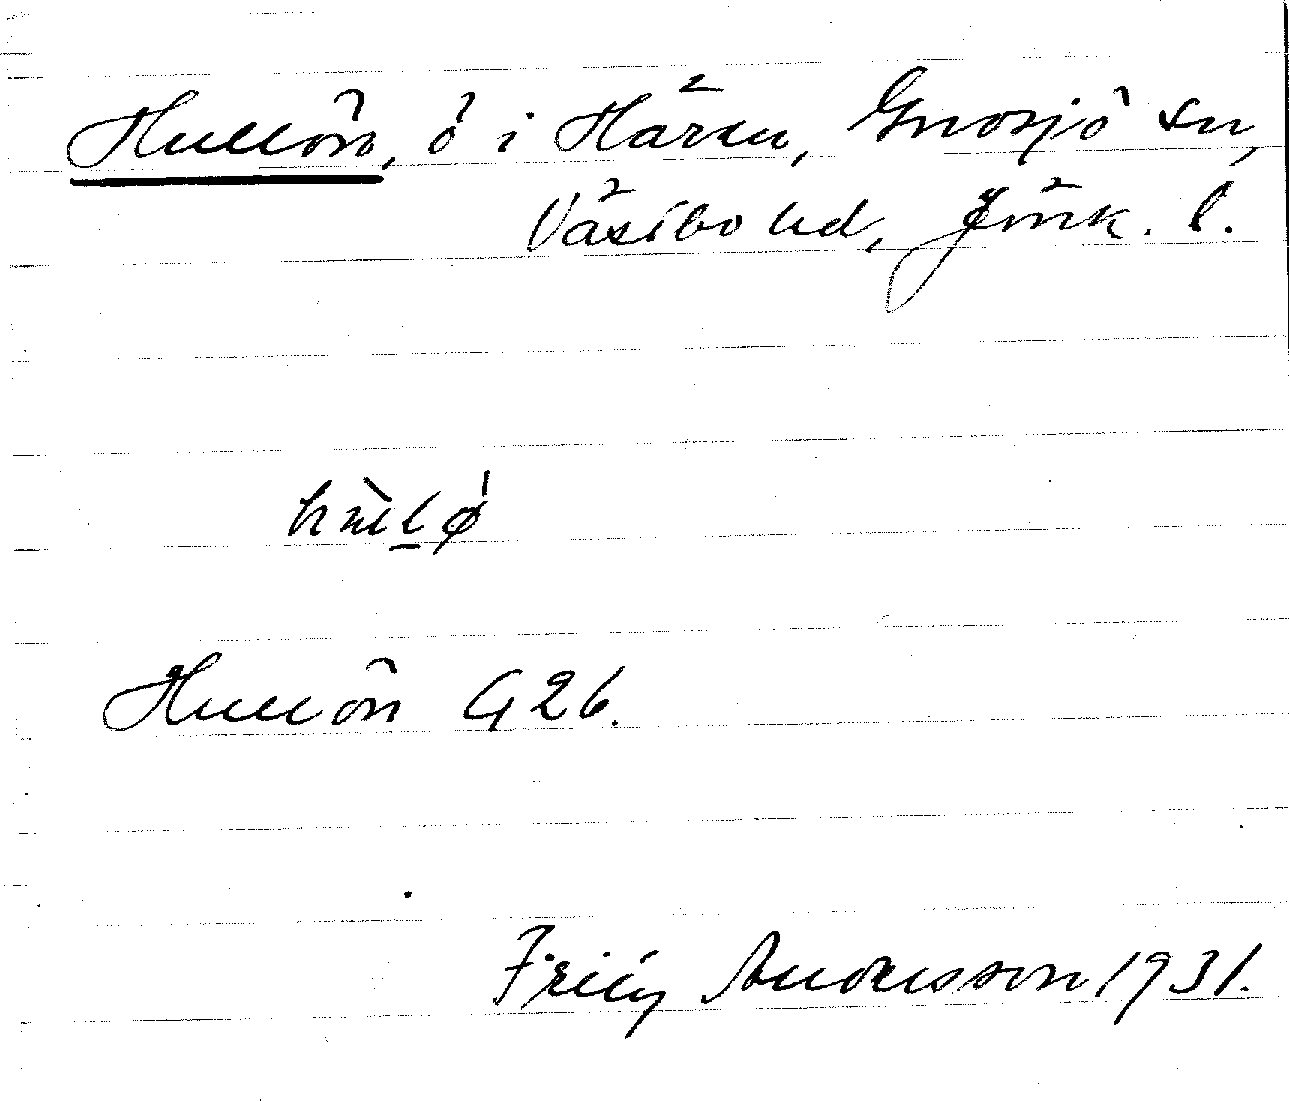 Hullön, ö i Hären, Gnosjö sn,
Västbo hd, Jönk. l.
Hullön G 26.
Fritz Andersson 1931.